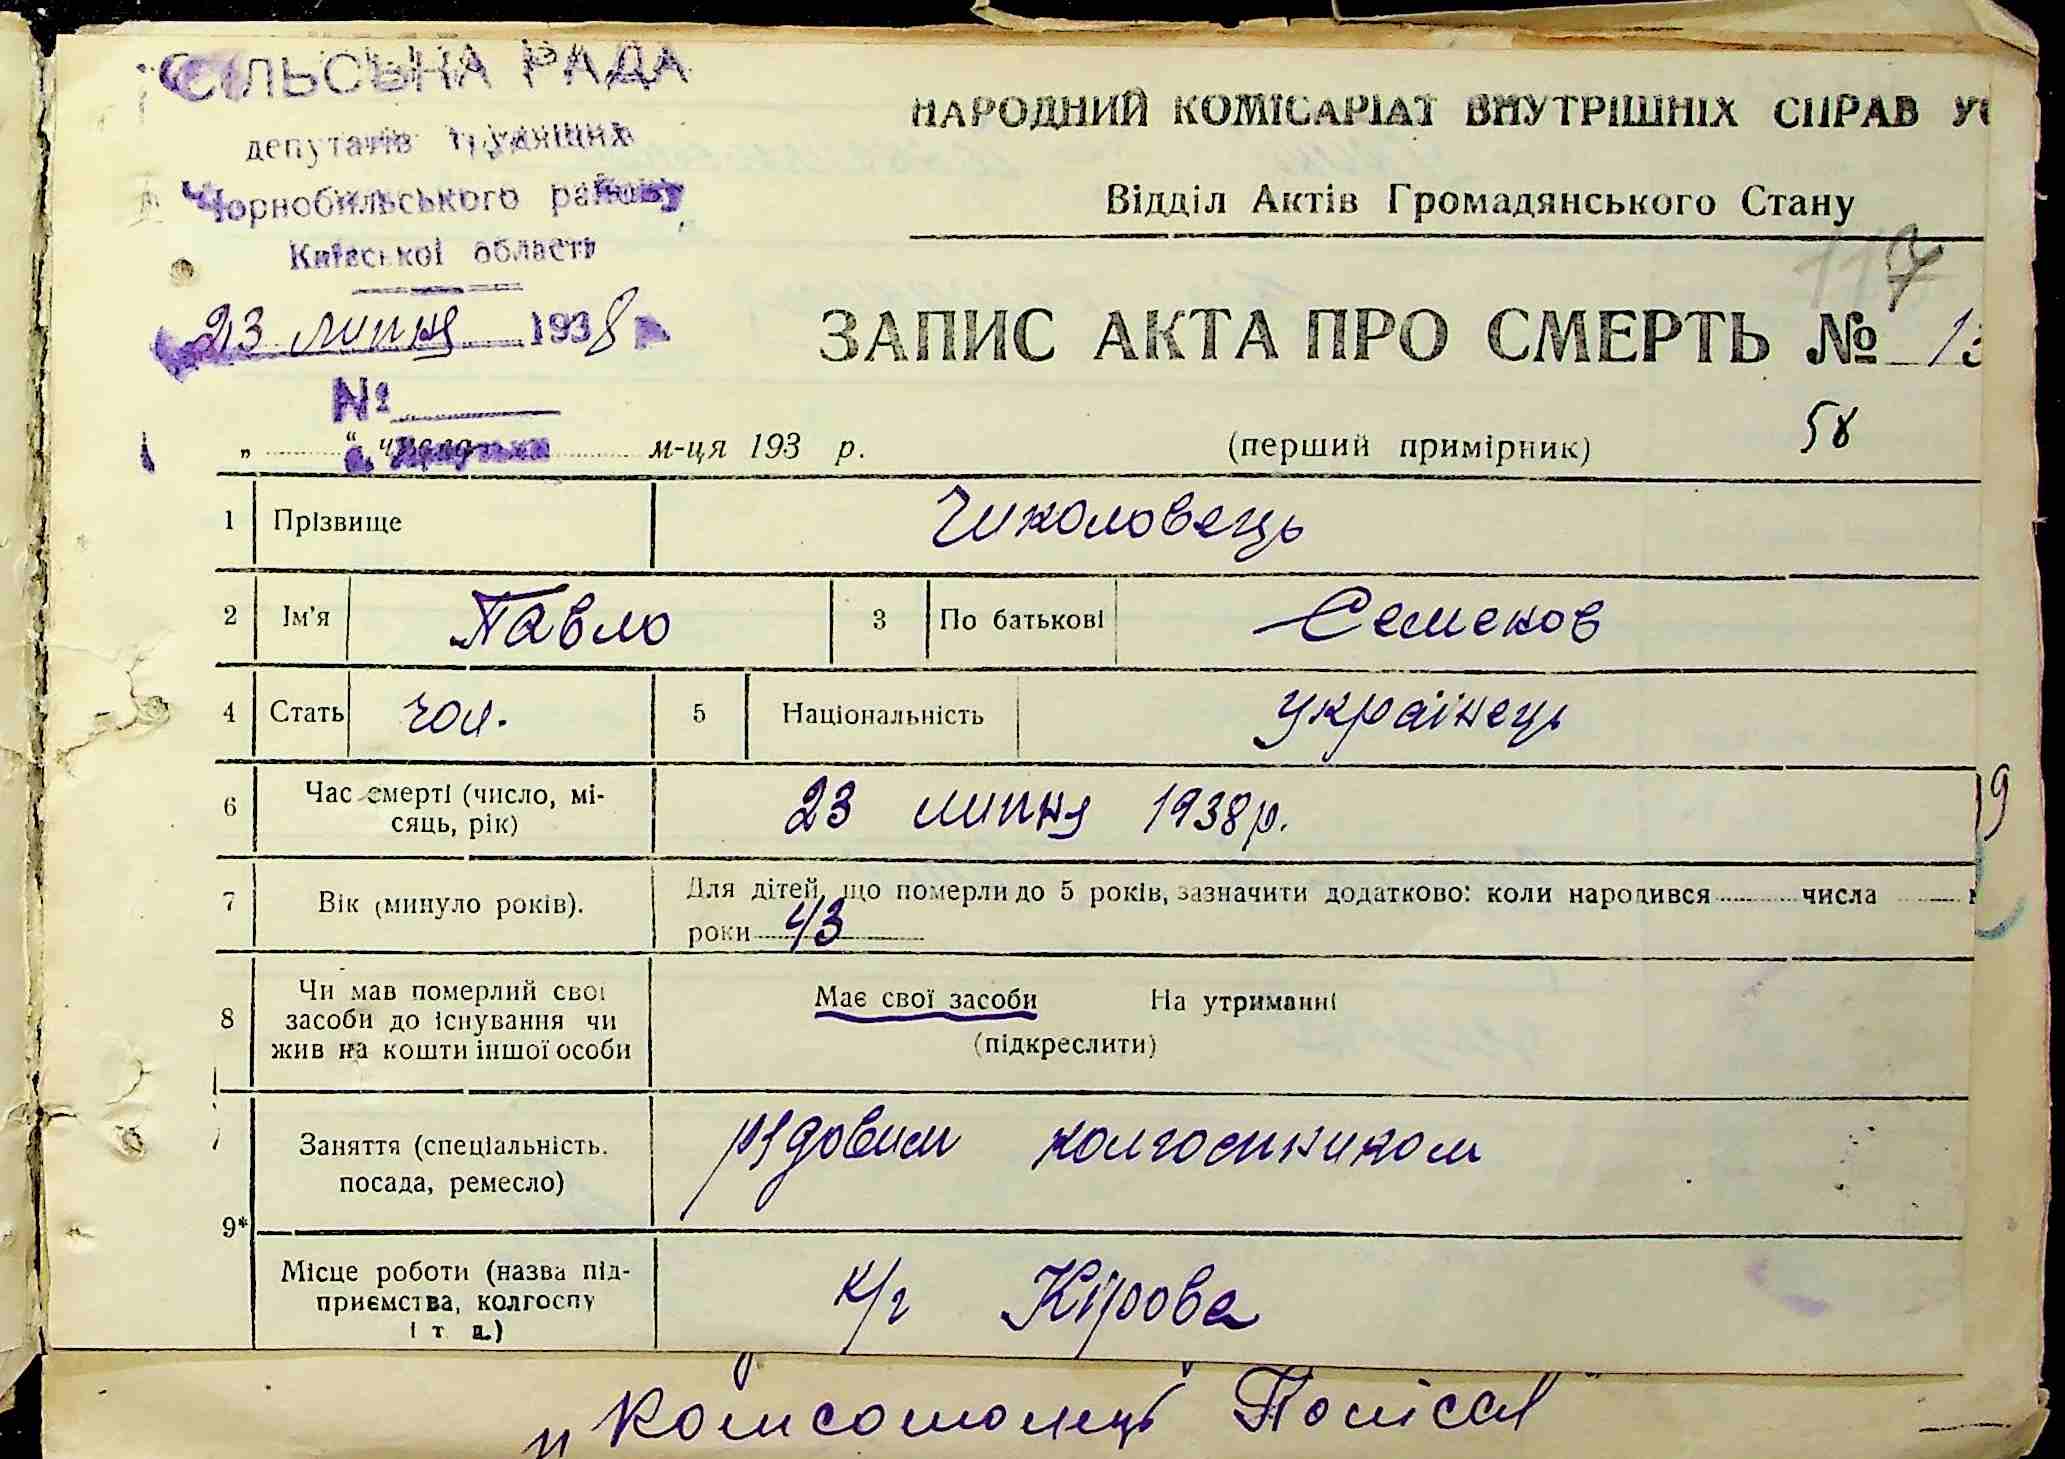 СІЛЬСЬКА РАДА
депутатів трудящих
Чорнобильського району
Київської області
23 липня 1938
№
НАРОДНИЙ КОМІСАРІАТ ВНУТРІШНІХ СПРАВ
Відділ Актів Громадянського Стану
117
ЗАПИС АКТА ПРО СМЕРТЬ № 13
58
„ “ числа м-ця 193 р. (перший примірник)
1 Прізвище Чиколовець
2 Ім'я Павло 3 По батькові Семенов
4 Стать чол. 5 Національність українець
6 Час смерті (число, мі-
сяць, рік) 23 липня 1938р.
7 Вік (минуло років). Для дітей, що померли до 5 років, зазначити додатково: коли народився числа
роки 43
8 Чи мав померлий свої
засоби до існування чи
жив на кошти іншої особи
Має свої засоби На утриманні
(підкреслити)
9*
Заняття (спеціальність.
посада, ремесло)
рядовим колгоспником
Місце роботи (назва під-
приємства, колгоспу
і т п.)
к/г Кірова
„Комсомолець Полісся"